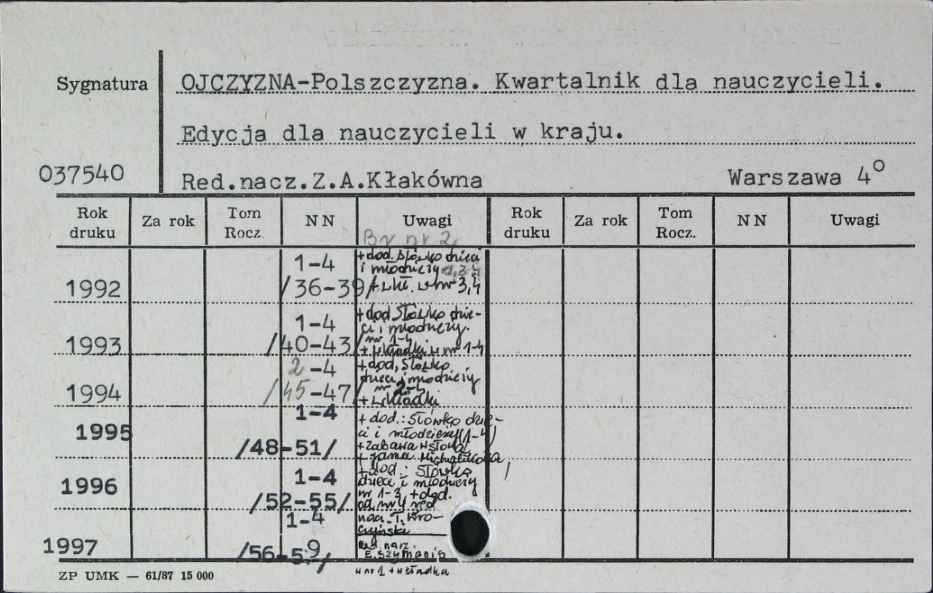 Sygnatura
OJCZYZNA-Polszczyzna. Kwartalnik dla nauczycieli.
Edycja dla nauczycieli w kraju.
037540
Red.nacz.Z.A.Kłakówna Warszawa 4°
Rok druku Za rok Tom Rocz. N N Uwagi Rok druku Za rok Tom Rocz. N N Uwagi
Br nr 2
1992 1-4 /36-39/
+dod. Słówko dzieci
i młodzieży
+wkł. w nr 3,4
1993 1-4 /40-43/
+dod Słówko dzie-
ci i młodzieży.
nr 1-4
+ wkładki w nr 1-4
1994 2-4 /45-47/
+dod. Słówko
dzieci i młodzieży
nr 2-4
+ wkładki
1995 1-4 /48-51/
+ dod.: Słówko dzie-
ci i młodzieży (1-4)
+zabawa
+ Jama Michalikowa
1996 1-4 /52-55/
+dod.: Słówko
dzieci i młodzieży
nr 1-3, +dod.
od nr 4 red
1997 1-4 /56-59/
nacz. T. Kro-
czyńska
Red. nacz.
E. Szymanis
w nr 1 + wkładka
ZP UMK — 61/87 15 000